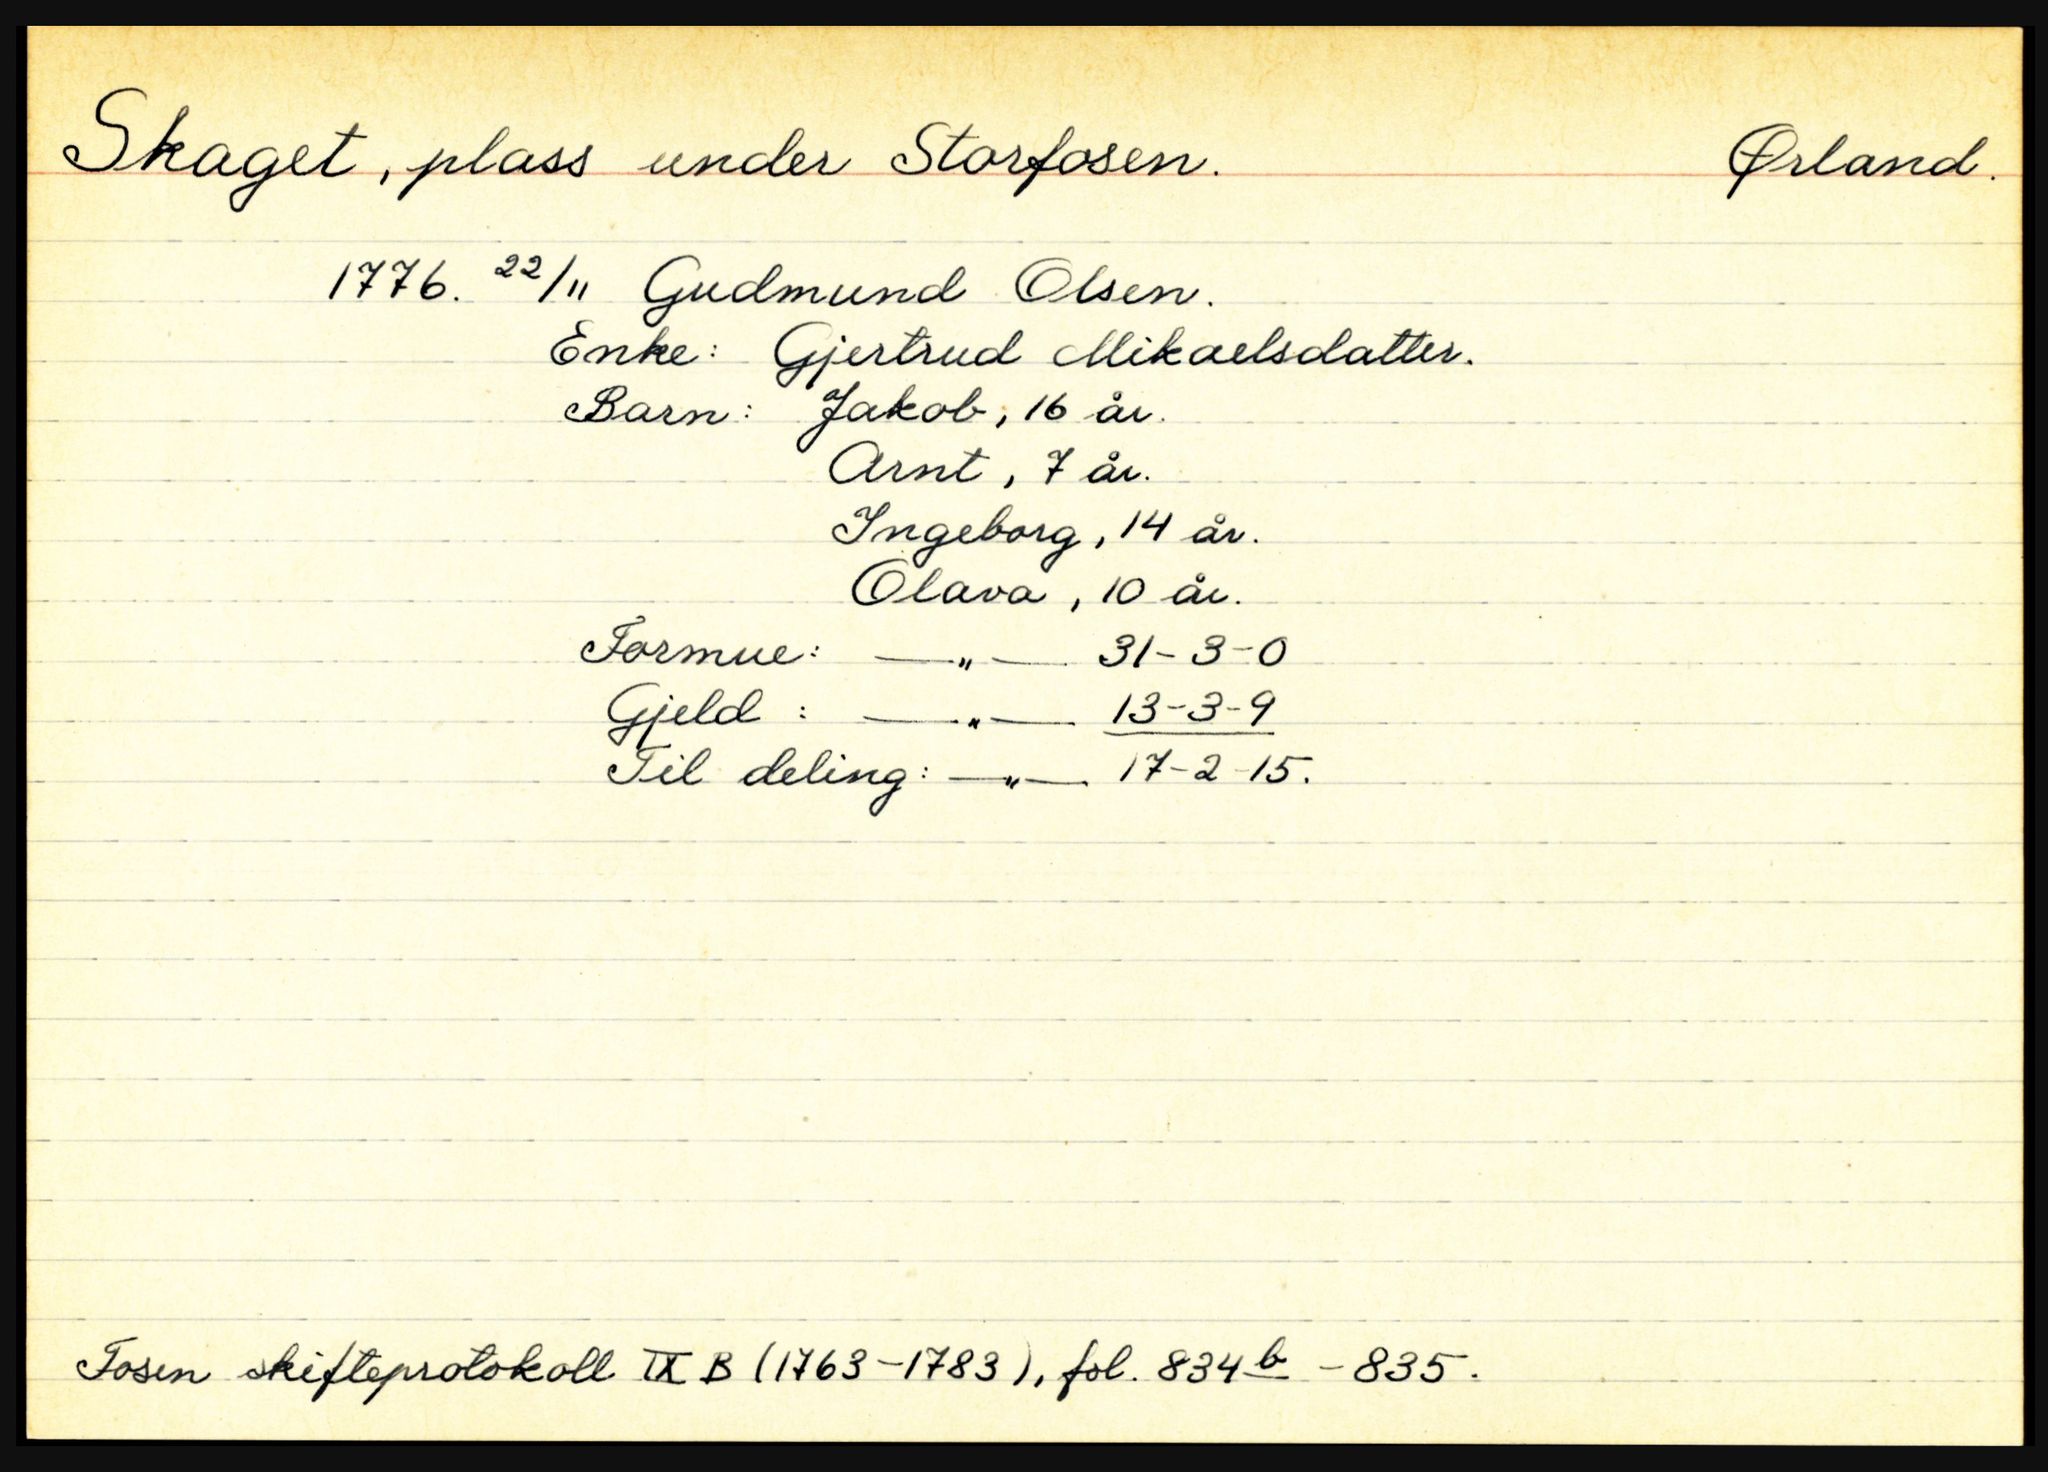 Skaget, plass under Storfosen. Ørland.
1776. 22/11 Gudmund Olsen.
Enke: Gjertrud Mikaelsdatter.
Barn: Jakob, 16 år.
Arnt, 7 år.
Ingeborg, 14 år.
Olava, 10 år.
Formue: —"— 31-3-0
Gjeld: —"— 13-3-9
Til deling: —"— 17-2-15.
Fosen skifteprotokoll IX B (1763-1783), fol. 834b-835.